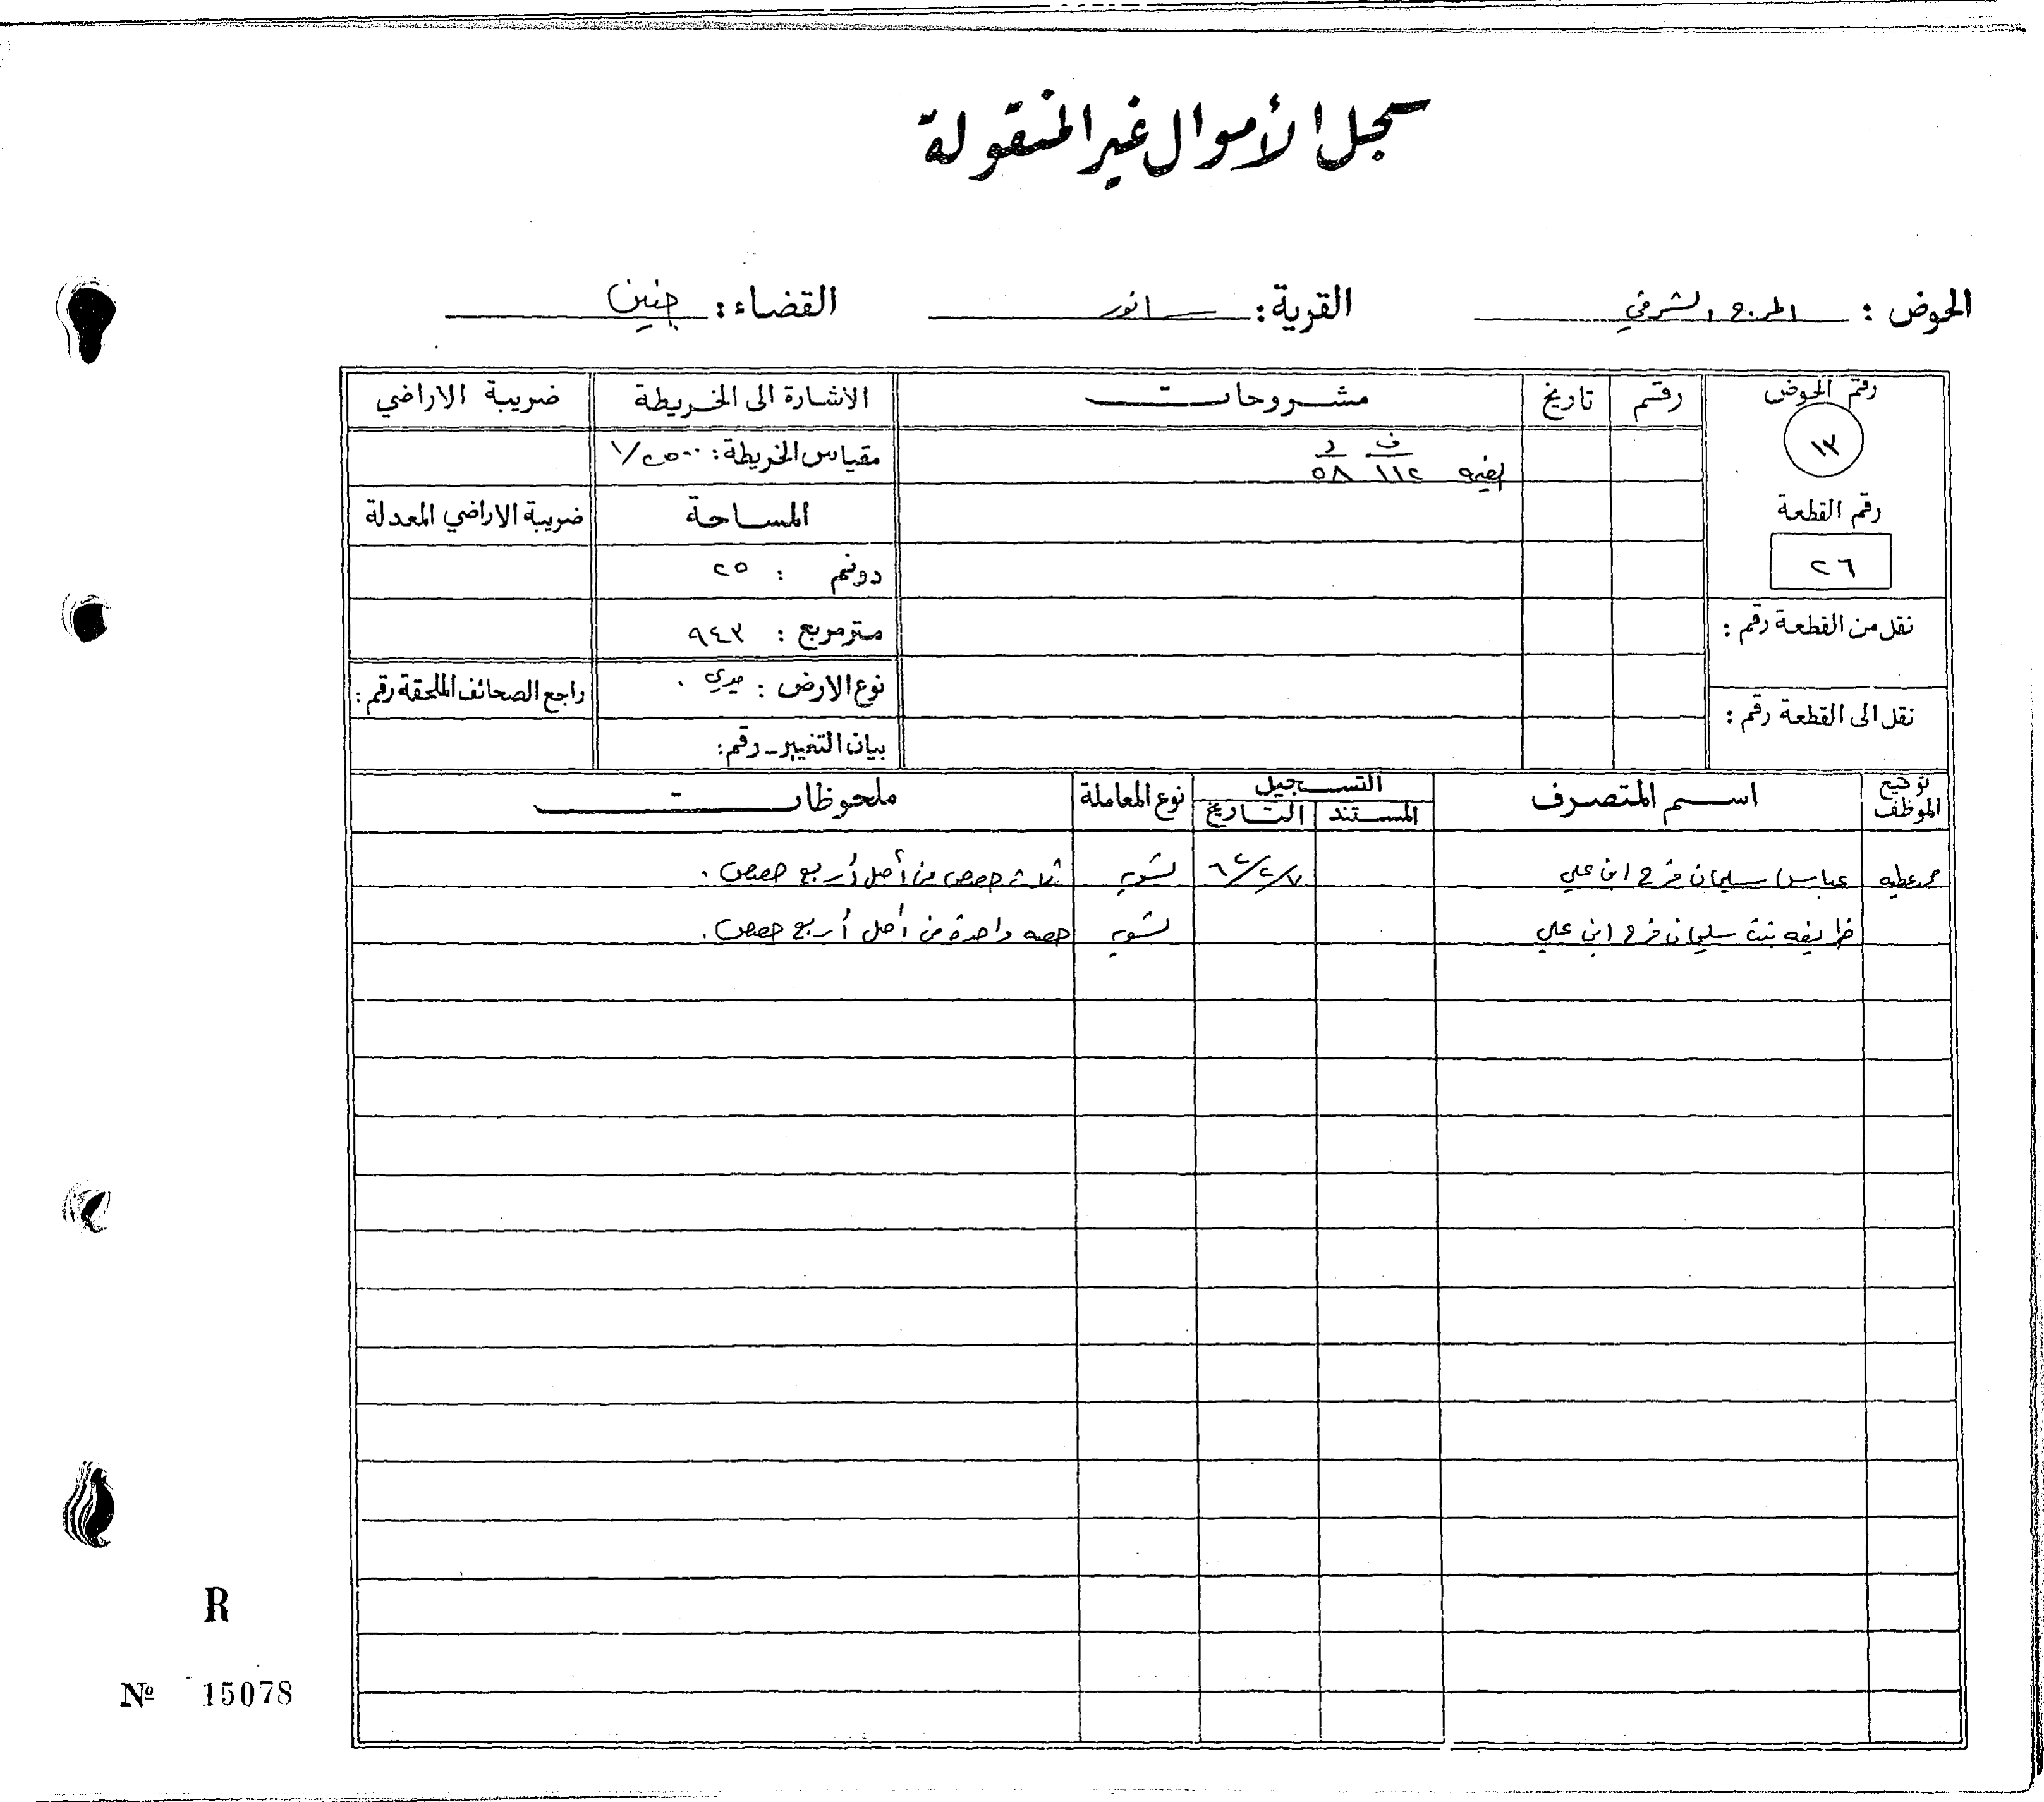 سجل الأموال غير المنقولة
الحوض : المرج الشرقي القرية : سانور القضاء : جنين
رقم الحوض رقم تاريخ مشروحات الاشارة الى الخريطة ضريبة الاراضي
١٣
ف د
١١٢ ٥٨
مقياس الخريطة : ١/٢٥٠٠
رقم القطعة المساحة ضريبة الاراضي المعدلة
٢٦ دونم : ٢٥
نقل من القطعة رقم : متر مربع : ٩٤٣
نوع الارض : ميري . راجع الصحائف الملحقة رقم :
نقل الى القطعة رقم : بيان التغيير - رقم :
توقيع الموظف اسم المتصرف التسجيل نوع المعاملة ملحوظات
المستند التاريخ
عباس سليمان فرح ابن علي ٧/٢/٦٢ تسويه ثلاث حصص من أصل أربع حصص .
ظريفه بنت سليمان فرح ابن علي تسويه حصه واحدة من أصل أربع حصص .
R
Nº 15078